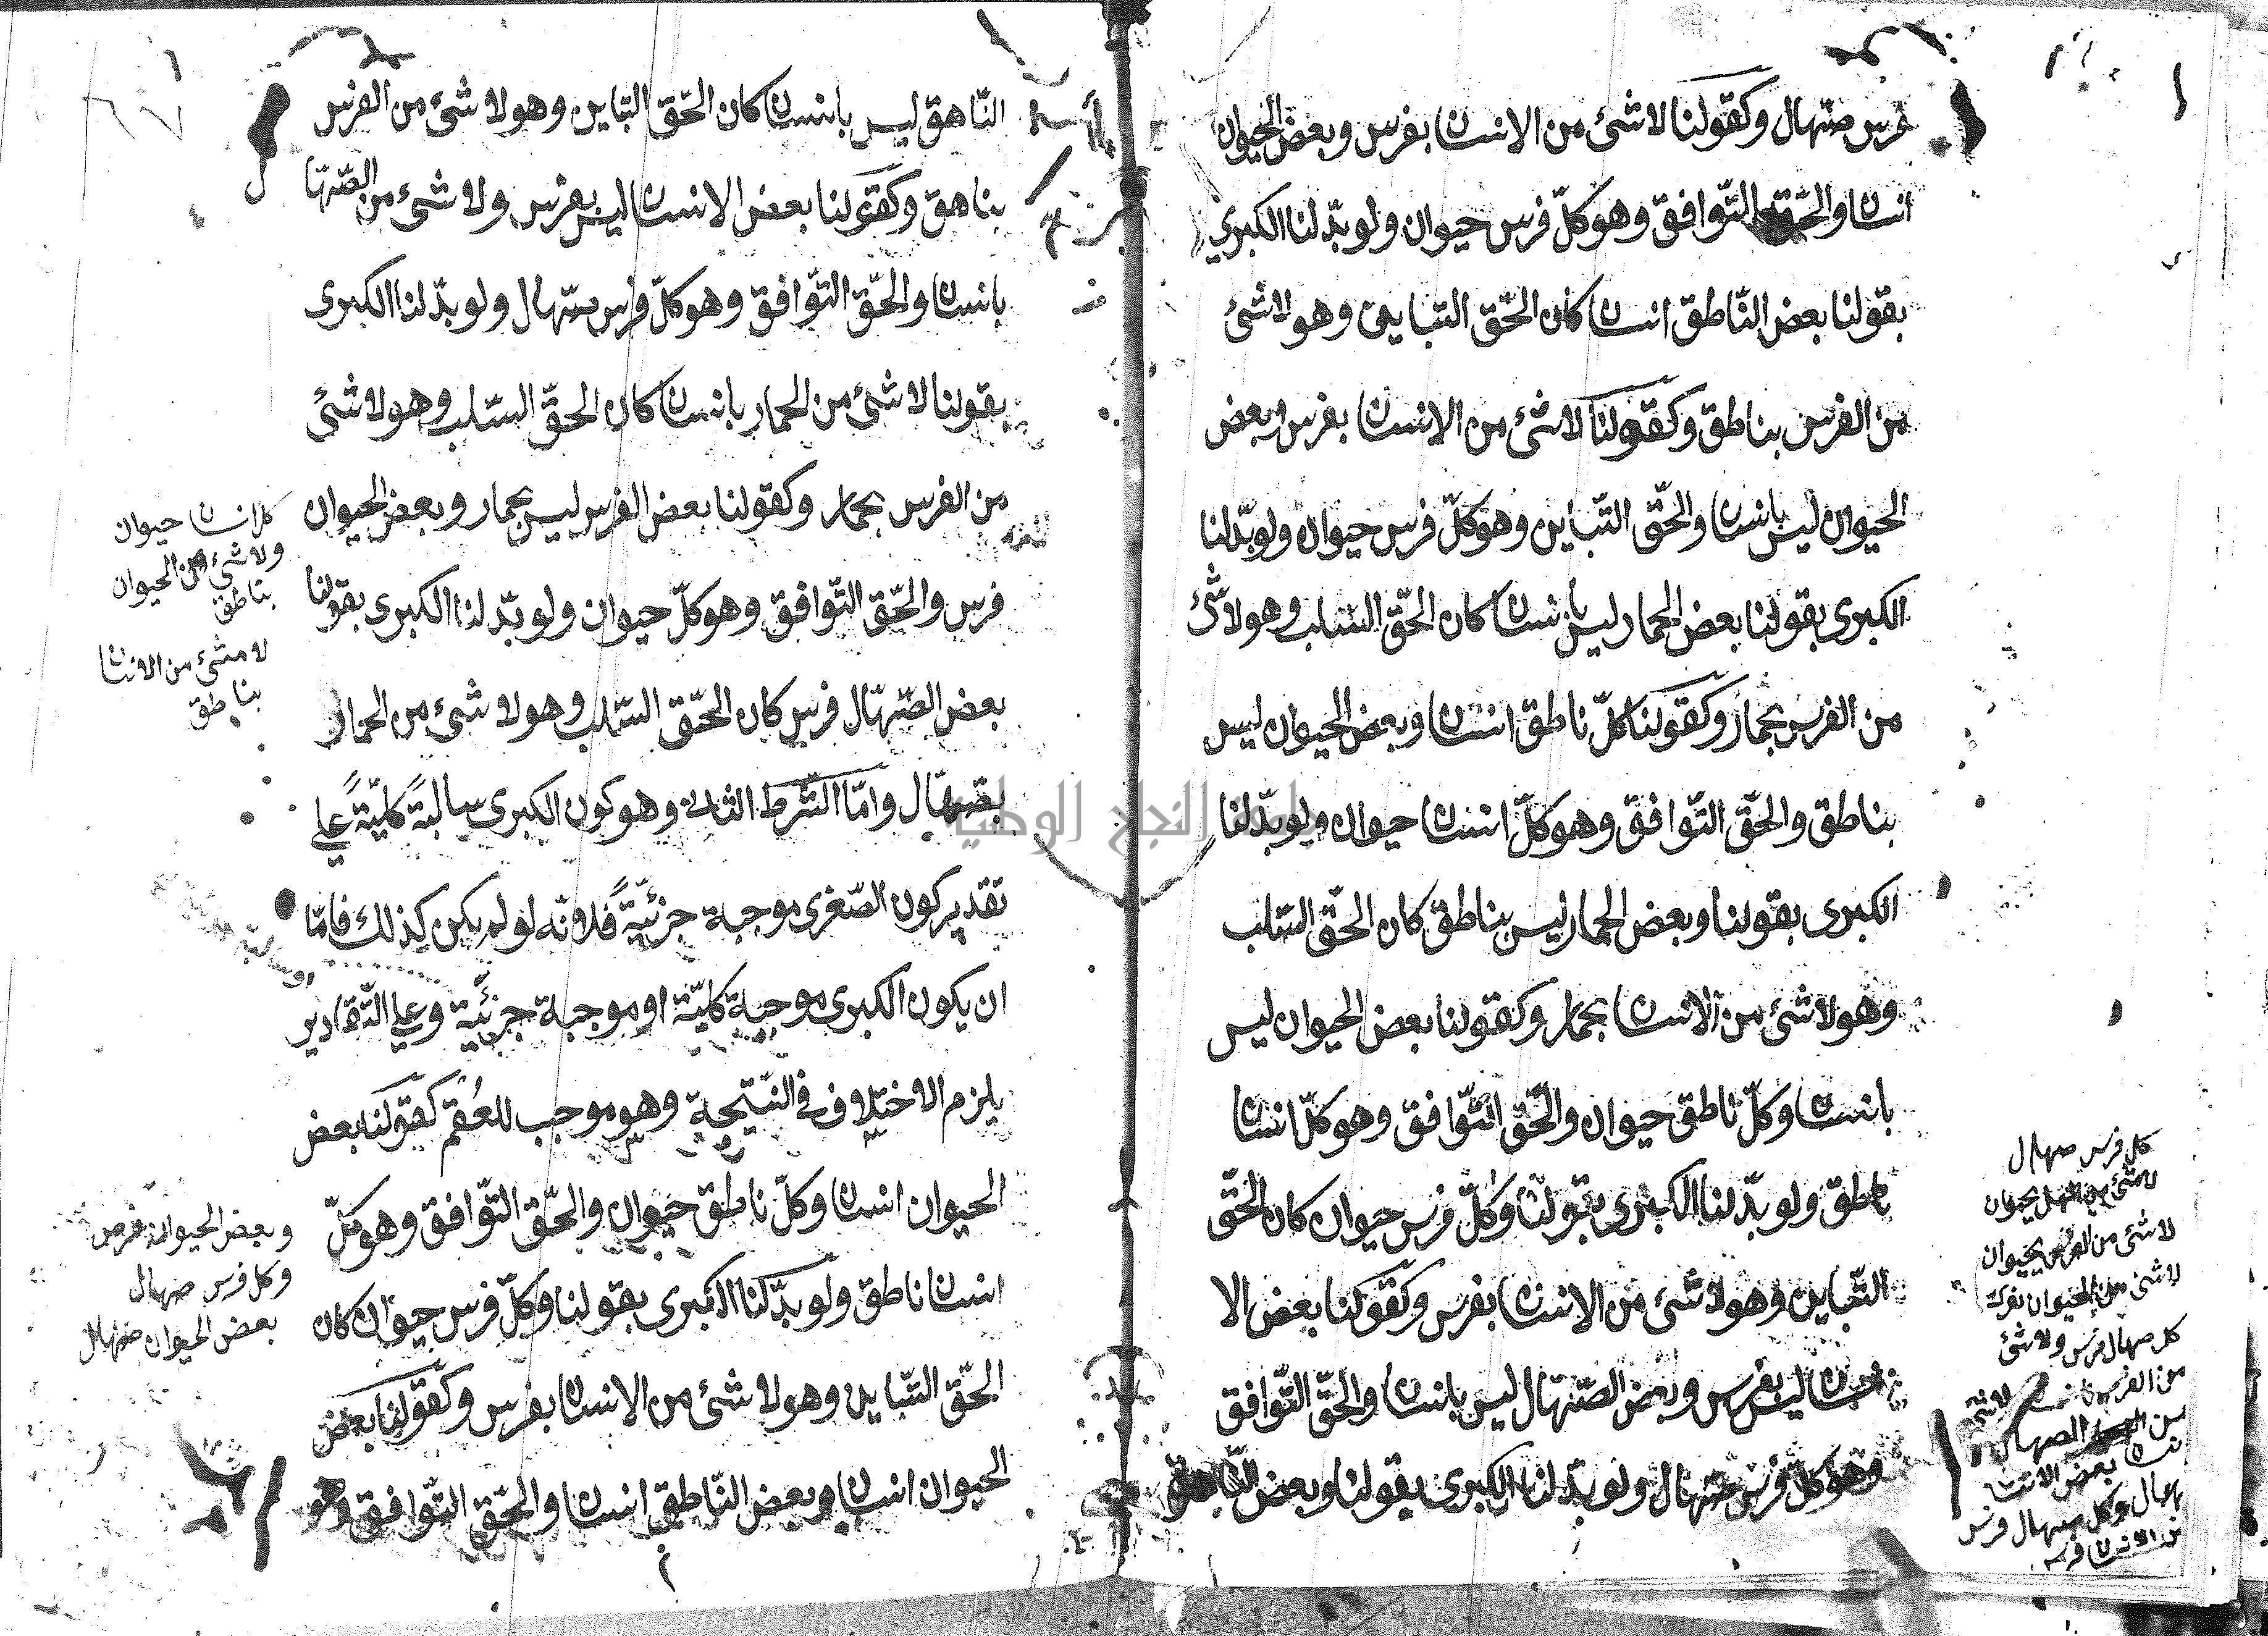 فرس صهّال وكقولنا لا شئ من الانسان بفرس وبعض الحيوان
انسان والحّق التّوافق وهو كلّ فرس حيوان ولو بدّلنا الكبري
بقولنا بعض النّاطق انسان كان الحّق التباين وهو لا شئ
من الفرس بناطق وكقولنا لا شئ من الانسان بفرس وبعض
الحيوان ليس بانسان والحّق التّباين وهو كلّ فرس حيوان ولو بدّلنا
الكبرى بقولنا بعض الحمار ليس بانسان كان الحّق السلب وهو لا شئ
من الفرس بحمار وكقولنا كلّ ناطق انسان وبعض الحيوان ليس
بناطق والحّق التّوافق وهو كلّ انسان حيوان ولو بدّلنا
الكبرى بقولنا وبعض الحمار ليس بناطق كان الحّق السلب
وهو لا شئ من الانسان بحمار وكقولنا بعض الحيوان ليس
بانسان وكلّ ناطق حيوان والحّق التّوافق وهو كلّ انسان
ناطق ولو بدّلنا الكبرى بقولنا وكلّ فرس حيوان كان الحّق
التّباين وهو لا شئ من الانسان بفرس وكقولنا بعض الا
نسان ليس بفرس وبعض الصّهّال ليس بانسان والحّق التّوافق
وهو كلّ فرس صهّال ولو بدّلنا الكبرى بقولنا وبعض النّاهق
كل فرس صهال
لا شئ من الفرس بحيوان
لا شئ من الحيوان بفرس
كل صهال فرس ولا شئ
بعض الانسان
صهال وكل صهال فرس
النّاهق ليس بانسان كان الحّق التباين وهو لا شئ من الفرس
بناهق وكقولنا بعض الانسان ليس بفرس ولا شئ من الصّهّا
ل
بانسان والحّق التّوافق وهو كلّ فرس صّهال ولو بدّلنا الكبرى
بقولنا لا شئ من الحمار بانسان كان الحقّ السّلب وهو لا شئ
من الفرس بحمار وكقولنا بعض الفرس ليس بحمار وبعض الحيوان
فرس والحّق التّوافق وهو كلّ حيوان ولو بدّلنا الكبرى بقولنا
بعض الصّهّال فرس كان الحّق السّلب وهو لا شئ من الحمار
بصّهّال وامّا الشّرط الثانى وهو كون الكبرى سالبةً كليّةً علي
تقدير كون الصّغرى موجبة جزئيّةً فلانّه لو لم يكن كذلك فامّا
ان يكون الكبرى موجبة كليّة او موجبة جزئيّة وعلي التّقادير
يلزم الاختلاف في النّتيجة وهو موجب للعُقم كقولنا بعض
الحيوان انسان وكلّ ناطق حيوان والحّق التّوافق وهو كلّ
انسان ناطق ولو بدّلنا الكبرى بقولنا وكلّ فرس حيوان كان
الحّق التّباين وهو لا شئ من الانسان بفرس وكقولنا بعض
الحيوان انسان وبعض النّاطق انسان والحّق التّوافق وهو
كل انسان حيوان
ولا شئ من الحيوان
بناطق
لا شئ من الانسان
بناطق
او سالبة
وبعض الحيوان فرس
وكل فرس صهال
بعض الحيوان صهال
جامعة النجاح الوطنية